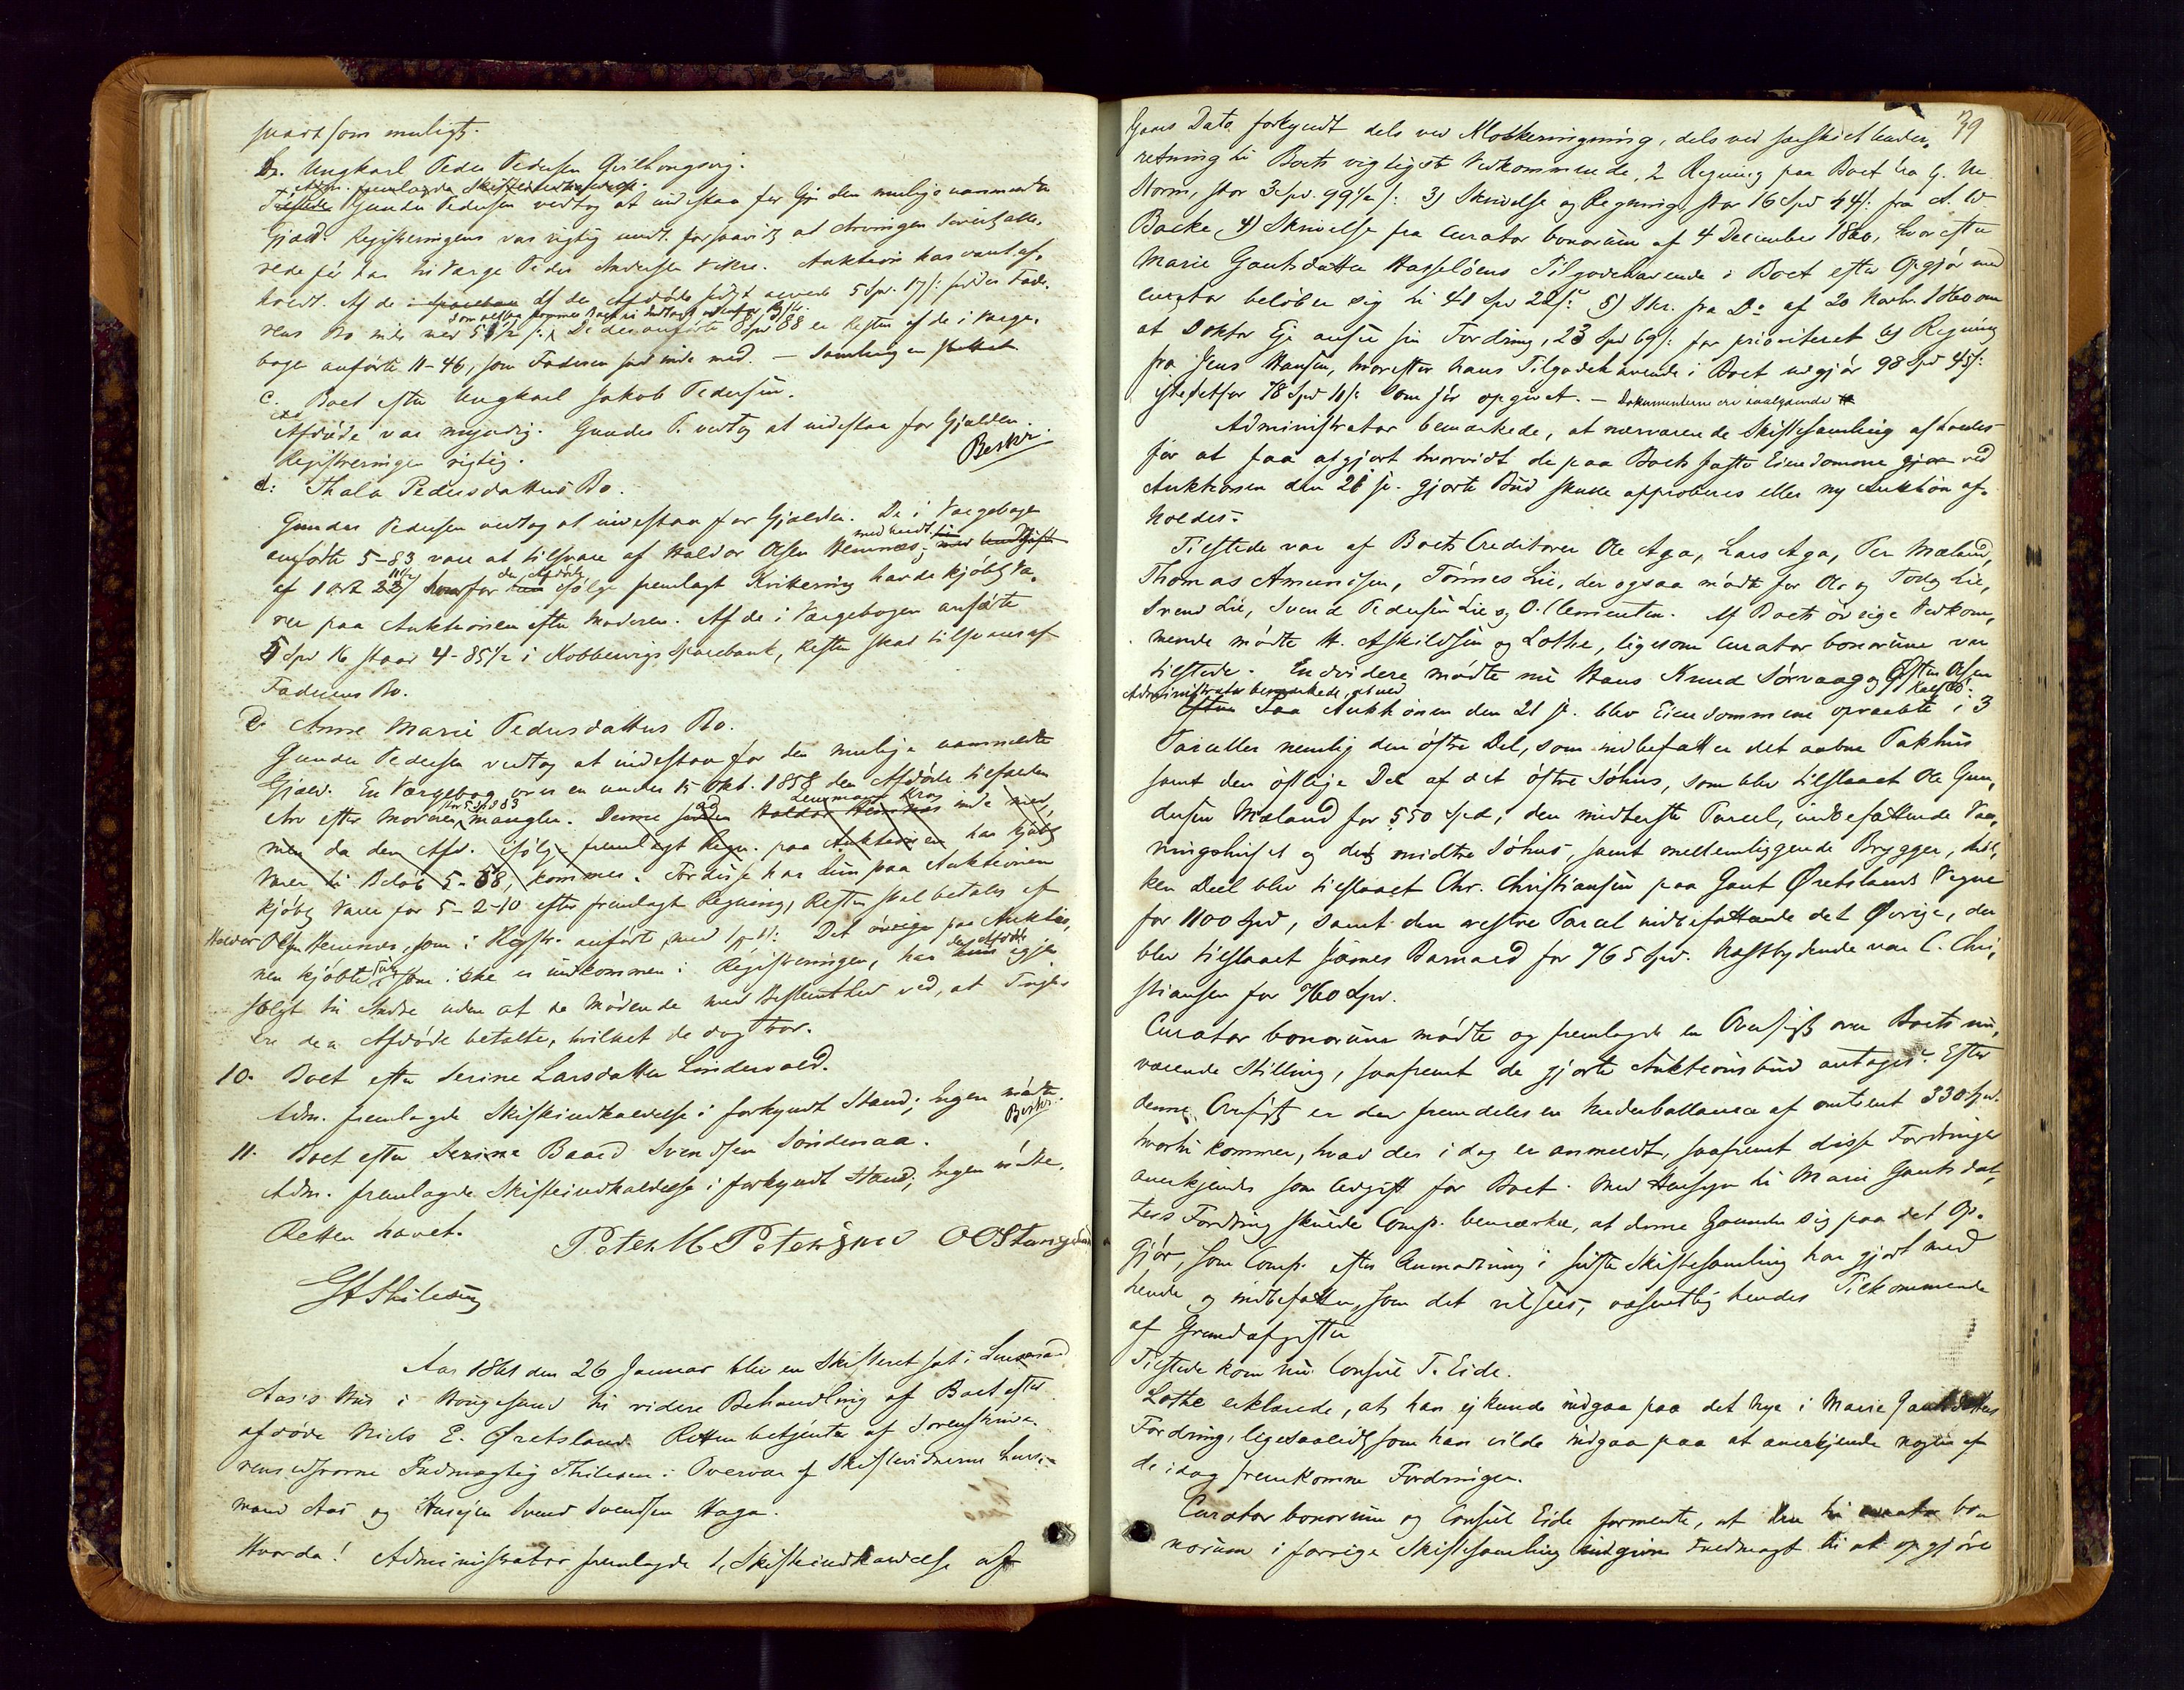 snart som muligt.
b. Ungkarl Peder Pedersen
Adm. fremlagde Skifteindkaldelse.
Gunder Pedersen vedtog at indestaa for den mulige uanmeldte
Gjæld. Registreringen var rigtig undt. forsaavidt at Arvingen Sivert alle,
rede før har til Værge Peder Andersen Vikse. Auktion har været af,
holdt. Af de af den Afdøde 5 Spd. 17 s: sidder Fade,
rens Bo inde med 51½ s: De desanførte 8 Spd 88 er Resten af de i Værge,
bogen anførte 11-46, som Faderen sad inde med. — Samlingen sluttet.
c. Boet efter Ungkarl Jakob Pedersen.
Afdøde var myndig. Gunder P. vedtog at indestaa for Gjælden.
Registreringen rigtig.
Beskr.
d: Thala Pedersdatters Bo.
Gunder Pedersen vedtog at indestaa for Gjælden. De i Værgebogen
anførte 5-83 vare at tilsvare af Haldor Olsen Hemnæs;
af 1 ort 22 s hvorfor den Afdøde ifølge fremlagt Kvittering havde kjøbt Va,
rer paa Auktionen efter Moderen. Af de i Værgebogen anførte
5 Spd 16 staar 4-85½ i Kobbervigs Sparebank, Resten skal tilsvares af
Faderens Bo.
e. Anne Marie Pedersdatters Bo.
Gunder Pedersen vedtog at indestaa for den mulige uanmeldte
Gjæld. En Værgebog over en under 15 Okt. 1858 den Afdøde tilfalden
Arv efter Moderen, stor 5 Spd 83 mangler. Denne sidder Haldor Hemnæs inde med,
men da den Afd. ifølge fremlagt Regn. paa Auktionen har kjøbt
Varer til Beløb 5-58, kommer. For disse har hun paa Auktionen
kjøbt Varer for 5-2-10 efter fremlagt Regning, Resten skal betales af
Haldor Olsen Hemnæs, som i Registr. anført med Det øvrige paa Auktio,
nen kjøbte som ikke er indkommen i Registreringen, har den Afdøde igjen
solgt til Andre uden at de Mødende med Bestemthed ved, at
ere den Afdøde betalte, hvilket de dog tror.
10. Boet efter Serine Larsdatter Lindevold.
Adm. fremlagde Skifteindkaldelse i forkyndt Stand; Ingen mødte.
Beskr.
11. Boet efter Baard Svendsen Søndenaa.
Adm. fremlagde Skifteindkaldelse i forkyndt Stand; Ingen mødte.
Retten hævet.
Peter M Petersen
Aar 1861 den 26 Januar blev en Skifteret sat i Lensmand
Aas's Hus i Haugesund til videre Behandling af Boet efter
afdøde Niels E. Øretsland. Retten betjentes af Sorenskrive,
rens edsvorne Fuldmægtig Thilesen i Overvær af Skiftevidnerne Lens,
mand Aas og Husejer Svend Svendsen Haga.
Hvorda! Administrator fremlagde 1, Skifteindkaldelse af
39
Gaars Dato forkyndt dels ved Klokkeringning, dels ved særskilt Under,
retning til Boets vigtigste Vedkommende, 2 Regning paa Boet fra G. M.
Storm, stor 3 Spd. 99½ s: 3) Skrivelse og Regning stor 16 Spd 44 s: fra A. W
Backe, 4) Skrivelse fra Curator bonorum af 4 December 1860, hvorefter
Marie Gautsdatter Hasseløens Tilgodehavende i Boet efter Opgjør med
Curator beløber sig til 41 Spd 22 s: 5) Skr. fra Do af 20 Novbr. 1860 om
at Doktor Eje anser sin Fordring, 23 Spd 69 s: for prioriteret 6) Regning
fra Jens Hansen, hvorefter hans Tilgodehavende i Boet udgjør 98 Spd 45 s:
istedetfor 78 Spd 11 s: som før opgivet. — Dokumenterne ere saalydende
Administrator bemærkede, at nærværende Skiftesamling afholdes
for at faa afgjort hvorvidt de paa Boets faste Eiendomme ved
Auktionen den 21 ds. gjorte Bud skulle approberes eller ny Auktion af,
holdes.
Tilstede var af Boets Creditorer Ole Aga, Lars Aga, Per Mæland,
Thomas Amundsen, Tønnes Lie, der ogsaa mødte for Ole og Today Lie,
Svend Lie, Svend Pedersen Lie og O. Clementsen. Af Boets øvrige Vedkom,
mende mødte H. Askildsen og Lothe, ligesom Curator bonorum var
tilstede. Endvidere mødte nu Hans Knud Sørvaag og Østen Olsen
Administrator bemærkede, at ved Auktionen den 21 ds. blev Eiendommene opraabte i 3
Parceller nemlig den østre Del, som indbefatter det aabne Pakhus
samt den østlige Del af det østre Søhus, som blev tilslaaet Ole Gun,
dersen Mæland for 550 Spd, den midterste Parcel, indbefattende Vaa,
ningshuset og det midtre Søhus, samt mellemliggende Brygger, hvil,
ken Deel blev tilslaaet Chr. Christiansen paa Gaut Øretslands Vegne
for 1100 Spd, samt den vestre Parcel indbefattende det Øvrige, der
blev tilslaaet James Barnard for 765 Spd. Næstbydende var C. Chri,
stiansen for 760 Spd.
Curator bonorum mødte og fremlagde en Oversigt over Boets nu,
værende Stilling, saafremt de gjorte Auktionsbud antages. Efter
denne Oversigt er der fremdeles en Underballance af omtrent 330 Spd.
hvortil kommer, hvad der i dag er anmeldt, saafremt disse Fordringer
anerkjendes som Udgift for Boet. Med Hensyn til Marie Gautsdat,
ters Fordring skulde Comp. bemærke, at denne grunder sig paa det Op,
gjør, som Comp. efter Anmodning i sidste Skiftesamling har gjort med
hende og indbefatter, som det vil sees, væsentlig hendes Tilkommende
af Grundafgifter
Tilstede kom nu Consul T. Eide.
Lothe erklærede, at han ej kunde indgaa paa det Nye i Marie Gautsdatters
Fordring, ligesaalidt som han vilde indgaa paa at anerkjende nogen af
de idag fremkomne Fordringer.
Curator bonorum og Consul Eide formente, at den til Curator bo
norum i forrige Skiftesamling indgivne Fuldmagt til at opgjøre